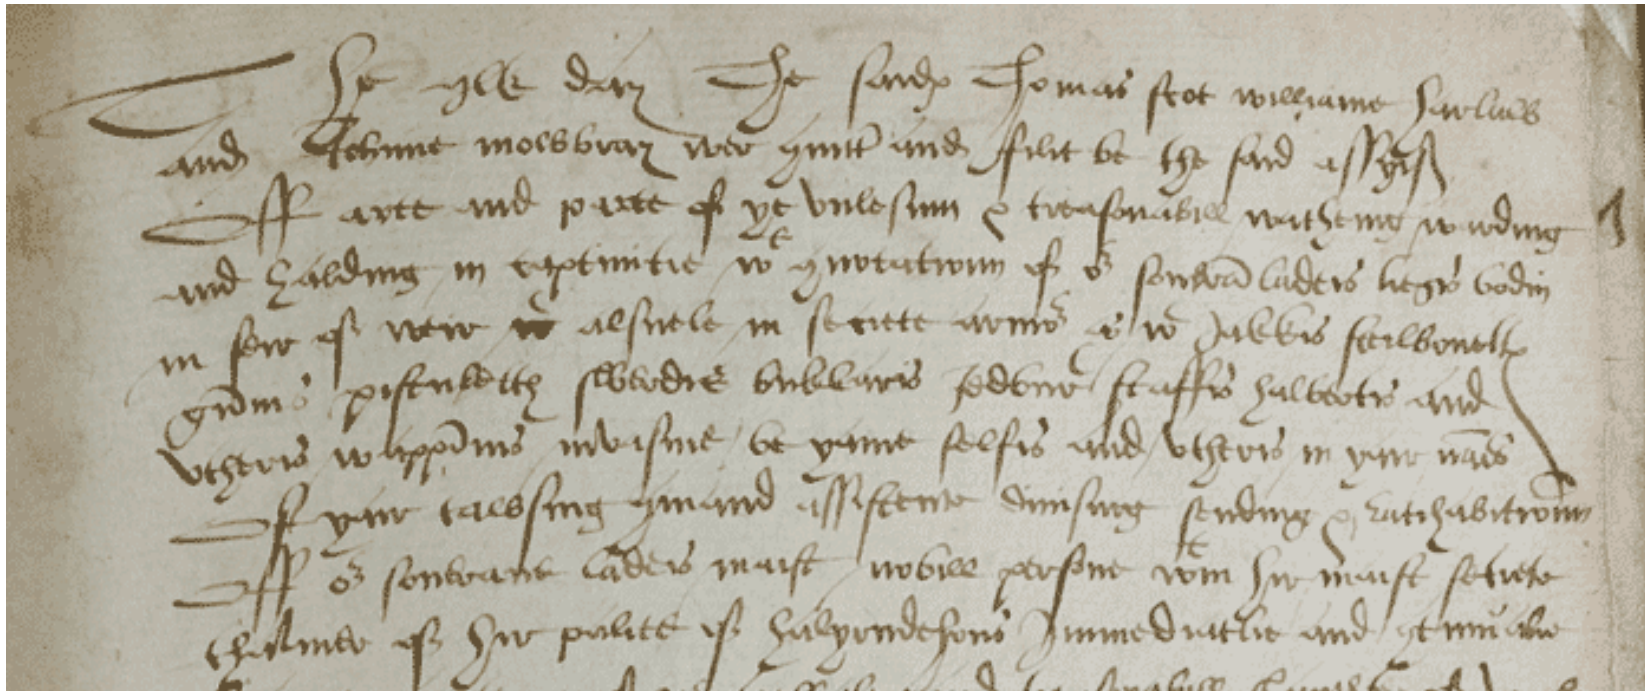 The ylk day The saidis Thomas scot williame harlaw
and Johnne mowbray wer quitt and fri​lit be the said assyiss
Off arte and parte of ye vnlesum & tressonabill wacheing warding
and halding in captiuitie wt of or souerā ladeis liegis bodin
in feir of weir alsuele in secrete armor as wt Jakkis steilbonettis
gūnis pistulettis swordis buklaris Jedburt staffis halbertis and
vtheris wappīnis invasiue be yame selfis and vtheris in yair nāis
Of yair causing assistence divising sending & ratihabitioun
Off or souerane ladeis maist nobill persone wtin hir maist secrete
chalmer of hir palice of halyrudehous Immediatlie and